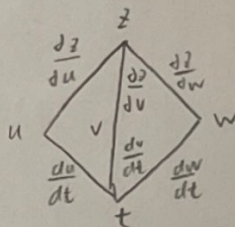 z
∂z/∂u ∂z/∂v ∂z/∂w
u v w
du/dt dv/dt dw/dt
t